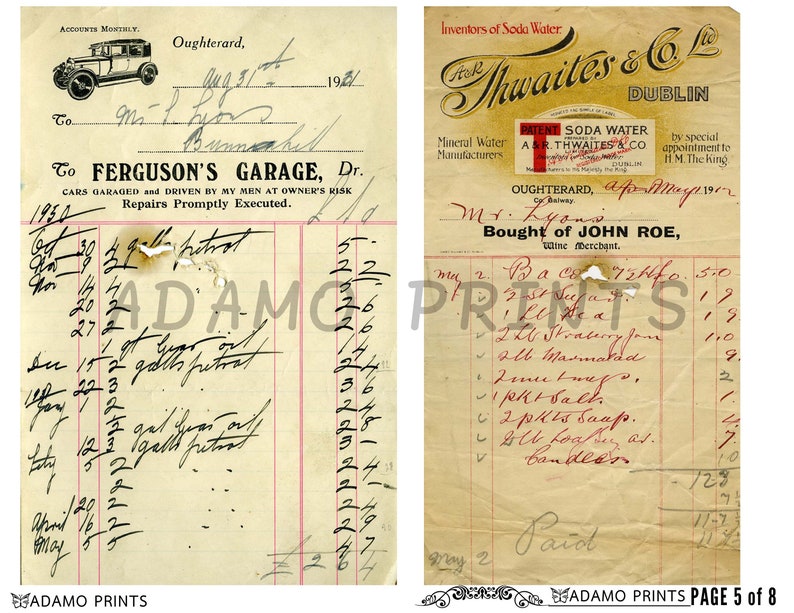 ACCOUNTS MONTHLY.
Oughterard,
Aug 31st 1931
To Mr P. Lyons
Bunnahill
To FERGUSON'S GARAGE, Dr.
CARS GARAGED and DRIVEN BY MY MEN AT OWNER'S RISK
Repairs Promptly Executed.
1930 £ s d
Oct 30 4 galls petrol 5 -
Nov 9 2 " 2 2
Nov 14 4 " 5
20 2 " 2 6
27 2 " 2 6
1 qt Gear oil 1
Dec 15 2 galls petrol 2 4
22 3 " 3 6
Jany 1 2 " 2 4
gal Gear oil 2 8
12 3 galls petrol 3 -
5 2 " " 2 4
2 " 2
20 2 2
April 16 2 " 2 9
May 5 5 " 4 7
£2 6 4
ADAMO PRINTS
Inventors of Soda Water.
A & R Thwaites & Co. Ltd
DUBLIN
PATENT SODA WATER
PREPARED BY
A & R. THWAITES & CO
LIMITED
DUBLIN
Manufacturers to His Majesty the King
Mineral Water
Manufacturers
by special
appointment to
H.M. The King
OUGHTERARD, May 1912
Co. Galway.
Mr. Lyons
Bought of JOHN ROE,
Wine Merchant.
May 2. Bacon 5.0
2 St Sugar. 1 9
1 lb Tea 1 9
2 lb Strawbery Jam 1.0
2 lb Marmalad 9.
2 nutmegs. 2
1 pkt Salt. 1.
2 pkts Soap. 4
2 lb Loaf Sugar. 7.
Candles 10
11-7
Paid
May 2
ADAMO PRINTS
ADAMO PRINTS
ADAMO PRINTS PAGE 5 of 8